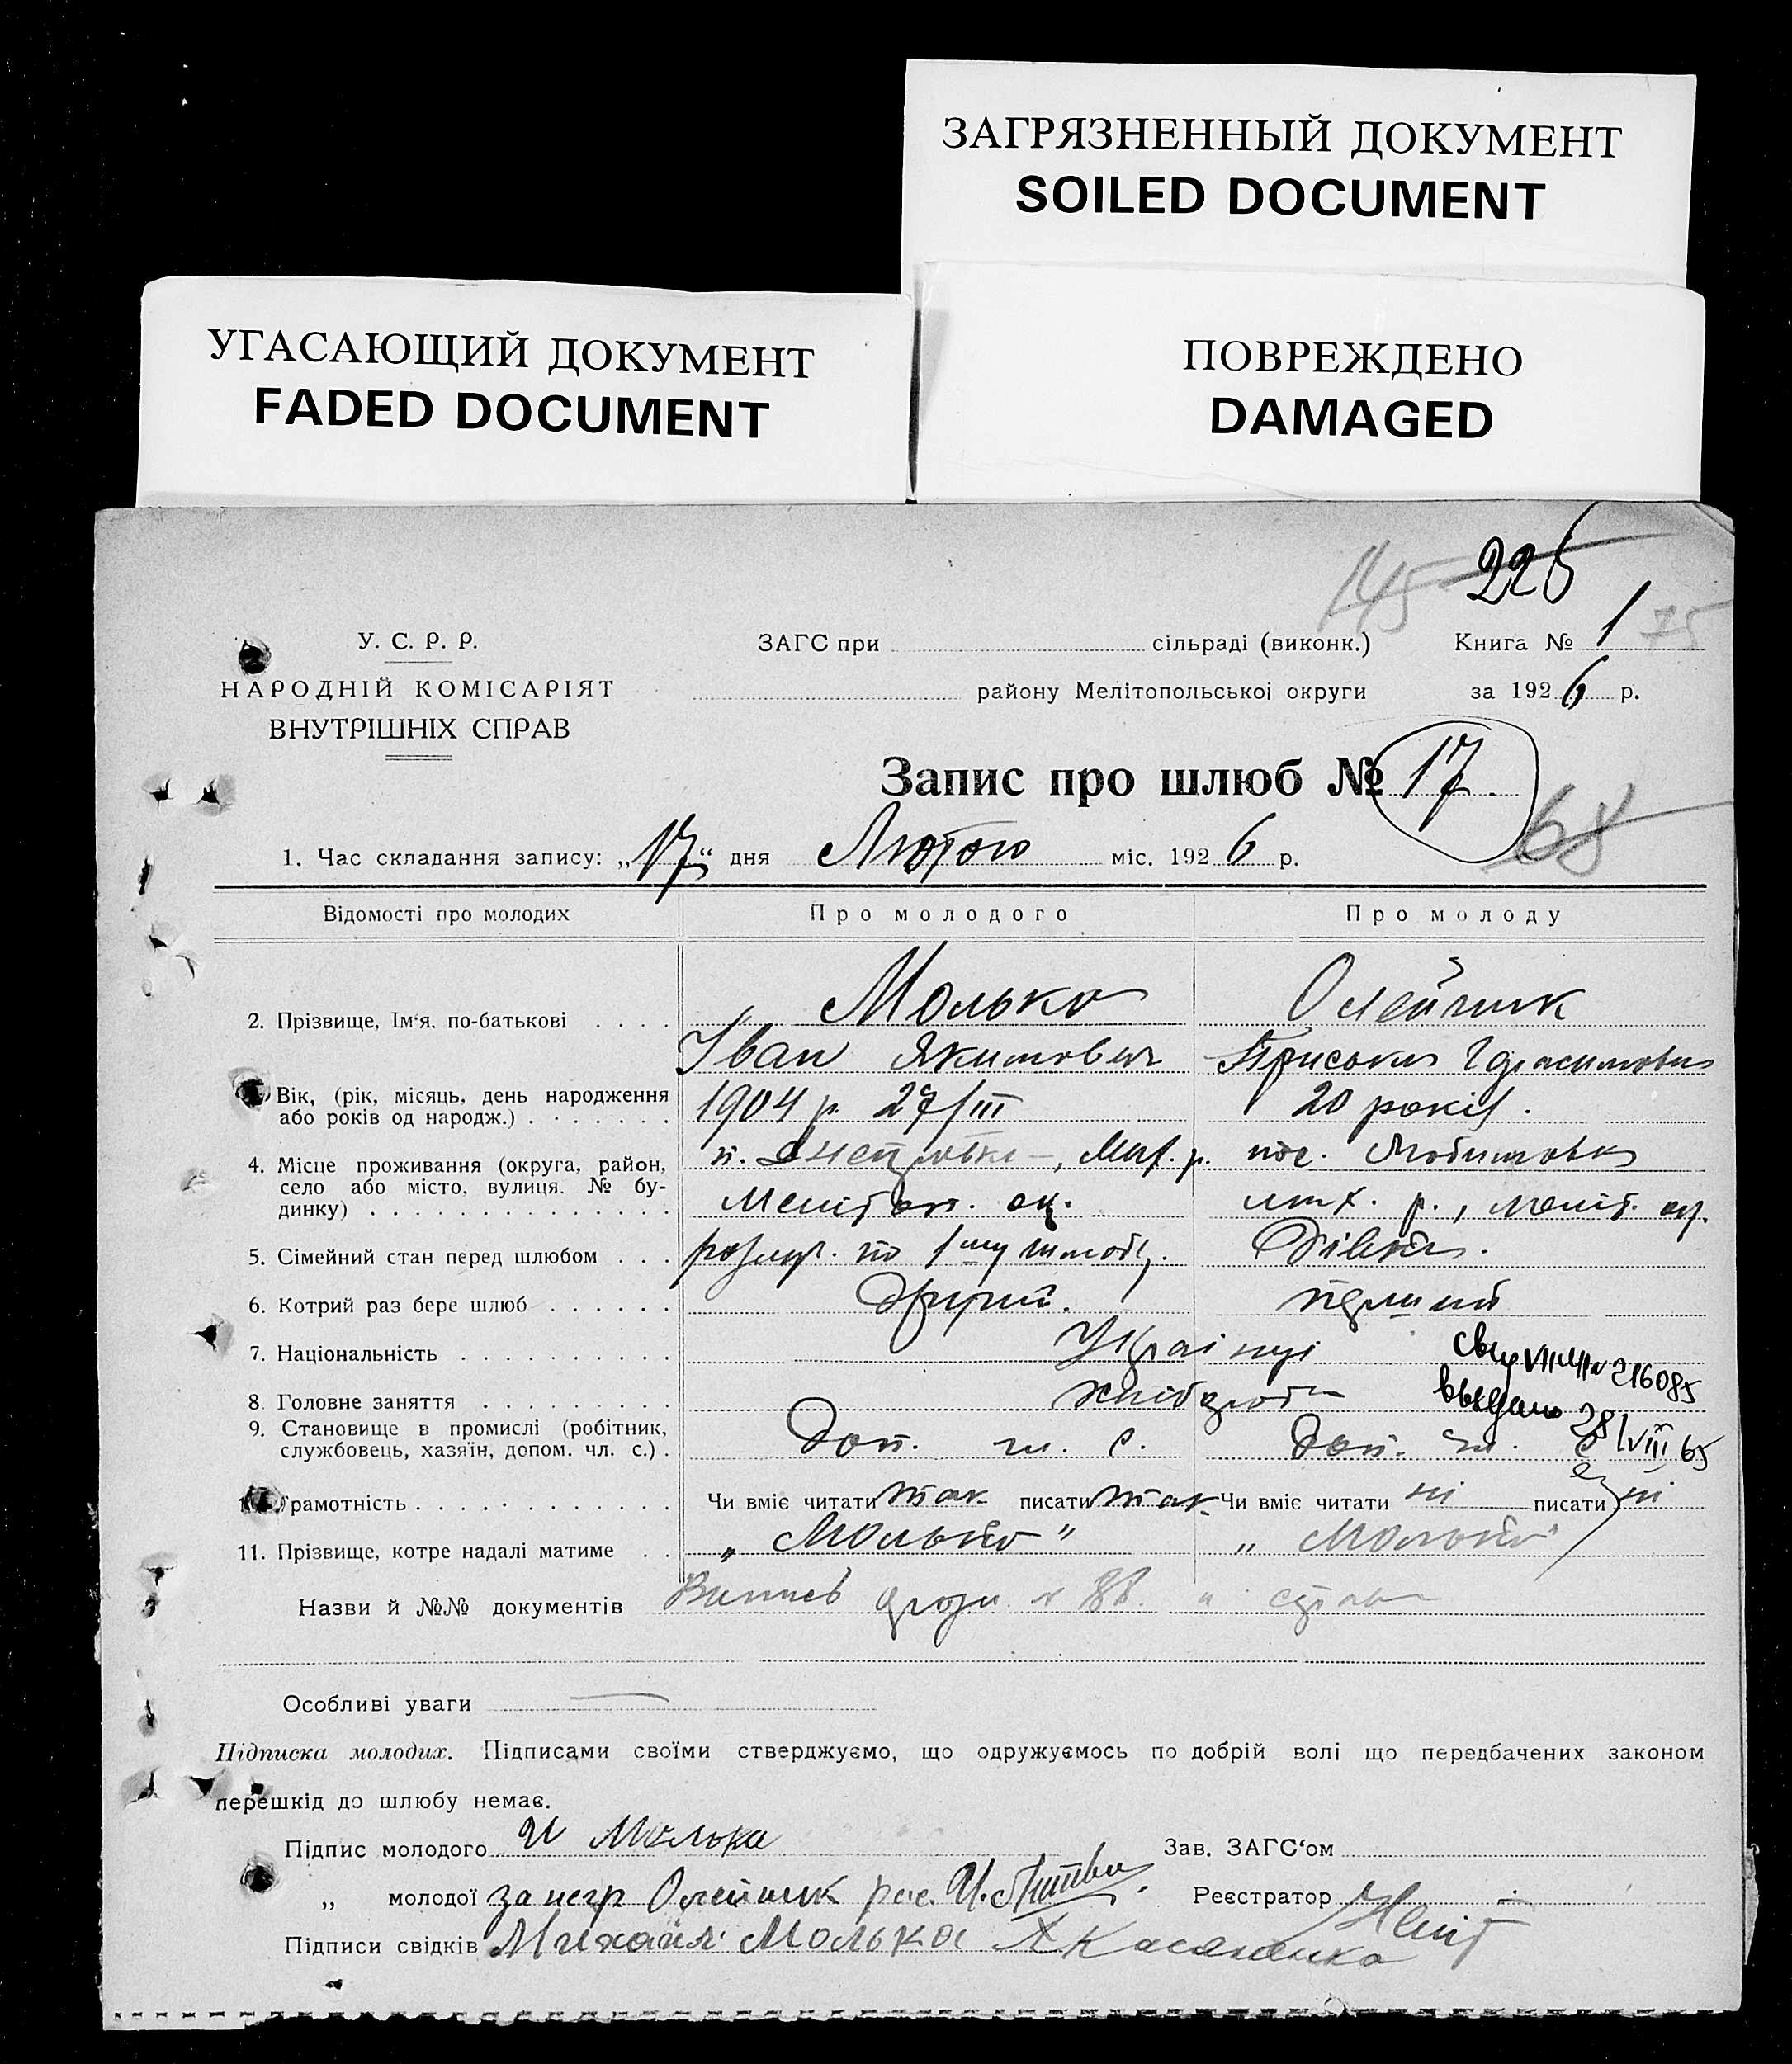 ЗАГРЯЗНЕННЫЙ ДОКУМЕНТ
SOILED DOCUMENT
УГАСАЮЩИЙ ДОКУМЕНТ
FADED DOCUMENT
ПОВРЕЖДЕНО
DAMAGED
145 226
У. С. Р. Р.
НАРОДНІЙ КОМІСАРІЯТ
ВНУТРІШНІХ СПРАВ
ЗАГС при сільраді (виконк.) Книга № 1 75
району Мелітопольської округи за 1926 р.
Запис про шлюб № 17.
68
1. Час складання запису: „17“ дня Лютого міс. 1926 р.
Відомості про молодих Про молодого Про молоду
2. Прізвище, Ім'я, по-батькові Молько Олейник
Іван Якимович Приська Герасимовна
Вік, (рік, місяць, день народження або років од народж.) 1904 р. 27/III 20 років.
4. Місце проживання (округа, район, село або місто, вулиця. № будинку) Мих. р. пос. Любимовка
Меліт. ок. р., Меліт. ок.
5. Сімейний стан перед шлюбом по 1му шлюбу. Дівка.
6. Котрий раз бере шлюб Другий. перший
7. Національність Українці
8. Головне заняття хлібороб
216085
выдано 28/VIII 65
9. Становище в промислі (робітник, службовець, хазяїн, допом. чл. с.) Доп. чл. с. Доп. чл. с
Грамотність Чи вміє читати так писати так Чи вміє читати ні писати ні
11. Прізвище, котре надалі матиме „Молько" „Молько"
Назви й №№ документів Випись № 88.
Особливі уваги —
Підписка молодих. Підписами своїми стверджуємо, що одружуємось по добрій волі що передбачених законом
перешкід до шлюбу немає.
Підпис молодого И Молька Зав. ЗАГС'ом
„ молодої за негр Олейник рос. Реєстратор
Підписи свідків Михаил Молька Касяненко